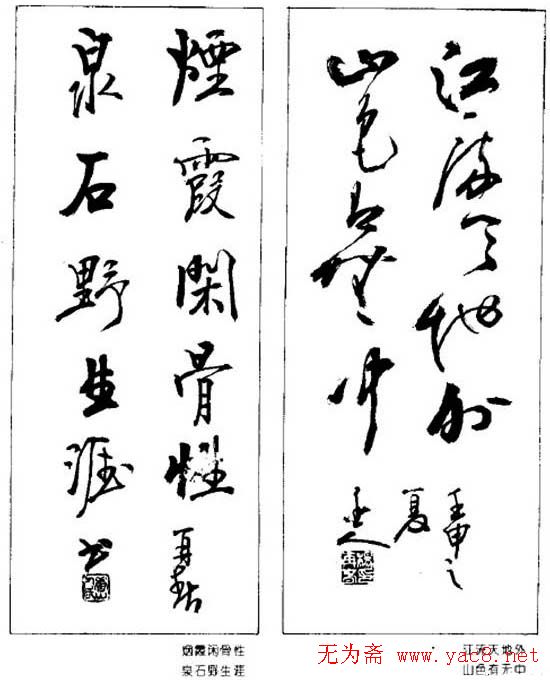 江流天地外
山色有无中
壬申之
夏
煙霞閑骨性
泉石野生涯
书
烟霞闲骨性
泉石野生涯
江流天地外
山色有无中
无为斋 www.yac8.net